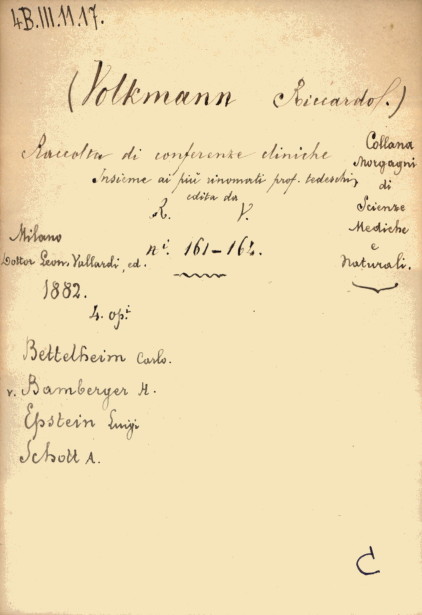 4B.III.11.17.
(Volkmann Riccardo.)
Raccolta di conferenze cliniche
Insieme ai più rinomati prof. tedeschi,
edita da
R. V.
ni. 161-164.
Collana
Morgagni
di
Scienze
Mediche
e
Naturali.
Milano
Dottor Leon. Vallardi, ed.
1882.
4. opi
Bettelheim Carlo.
v. Bamberger H.
Epstein Luigi
Schott A.
C